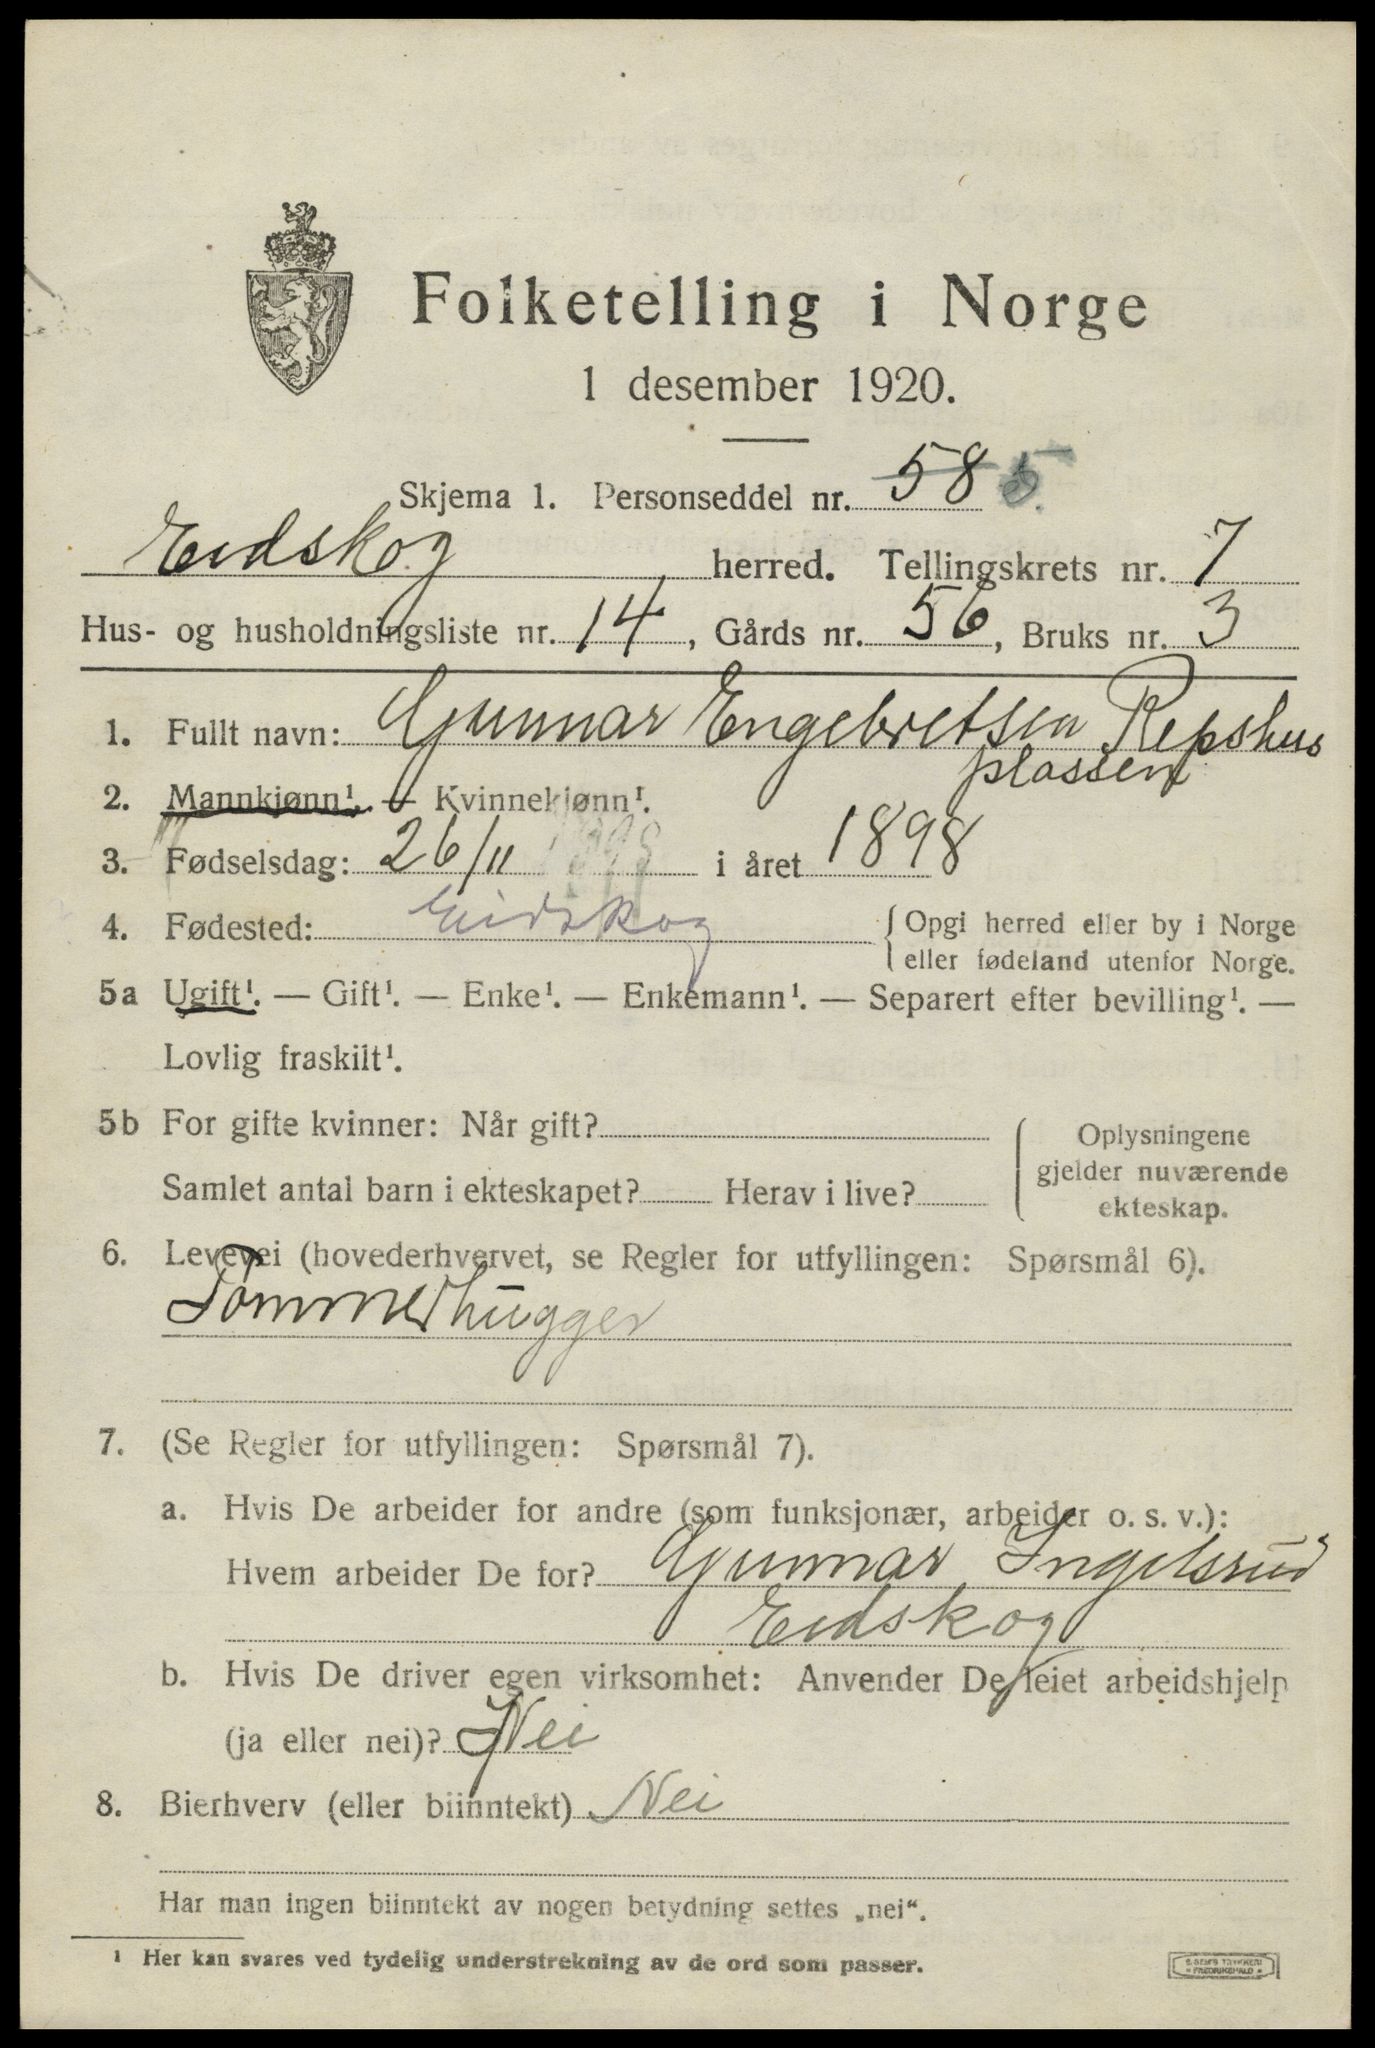 Folketelling i Norge
1 desember 1920.
Skjema 1. Personseddel nr. 58 5
Eidskog herred. Tellingskrets nr. 7
Hus- og husholdningsliste nr. 14, Gårds nr. 56, Bruks nr. 3
1. Fullt navn: Gunnar Engebretsen Repshus
plassen
2. Mannkjønn¹. — Kvinnekjønn¹.
3. Fødselsdag: 26/11 1898 i året 1898
4. Fødested: Eidskog { Opgi herred eller by i Norge
eller fødeland utenfor Norge.
5a Ugift¹. — Gift¹. — Enke¹. — Enkemann¹. — Separert efter bevilling¹. —
Lovlig fraskilt¹.
5b For gifte kvinner: Når gift? Oplysningene
gjelder nuværende
Samlet antal barn i ekteskapet? Herav i live? ekteskap.
6. Levevei (hovederhvervet, se Regler for utfyllingen: Spørsmål 6).
Tømmerhugger
7. (Se Regler for utfyllingen: Spørsmål 7).
a. Hvis De arbeider for andre (som funksjonær, arbeider o. s. v.):
Hvem arbeider De for? Gunnar Ingelsrud
Eidskog
b. Hvis De driver egen virksomhet: Anvender De leiet arbeidshjelp
(ja eller nei)? Nei
8. Bierhverv (eller biinntekt) Nei
Har man ingen biinntekt av nogen betydning settes „nei“.
¹ Her kan svares ved tydelig understrekning av de ord som passer.